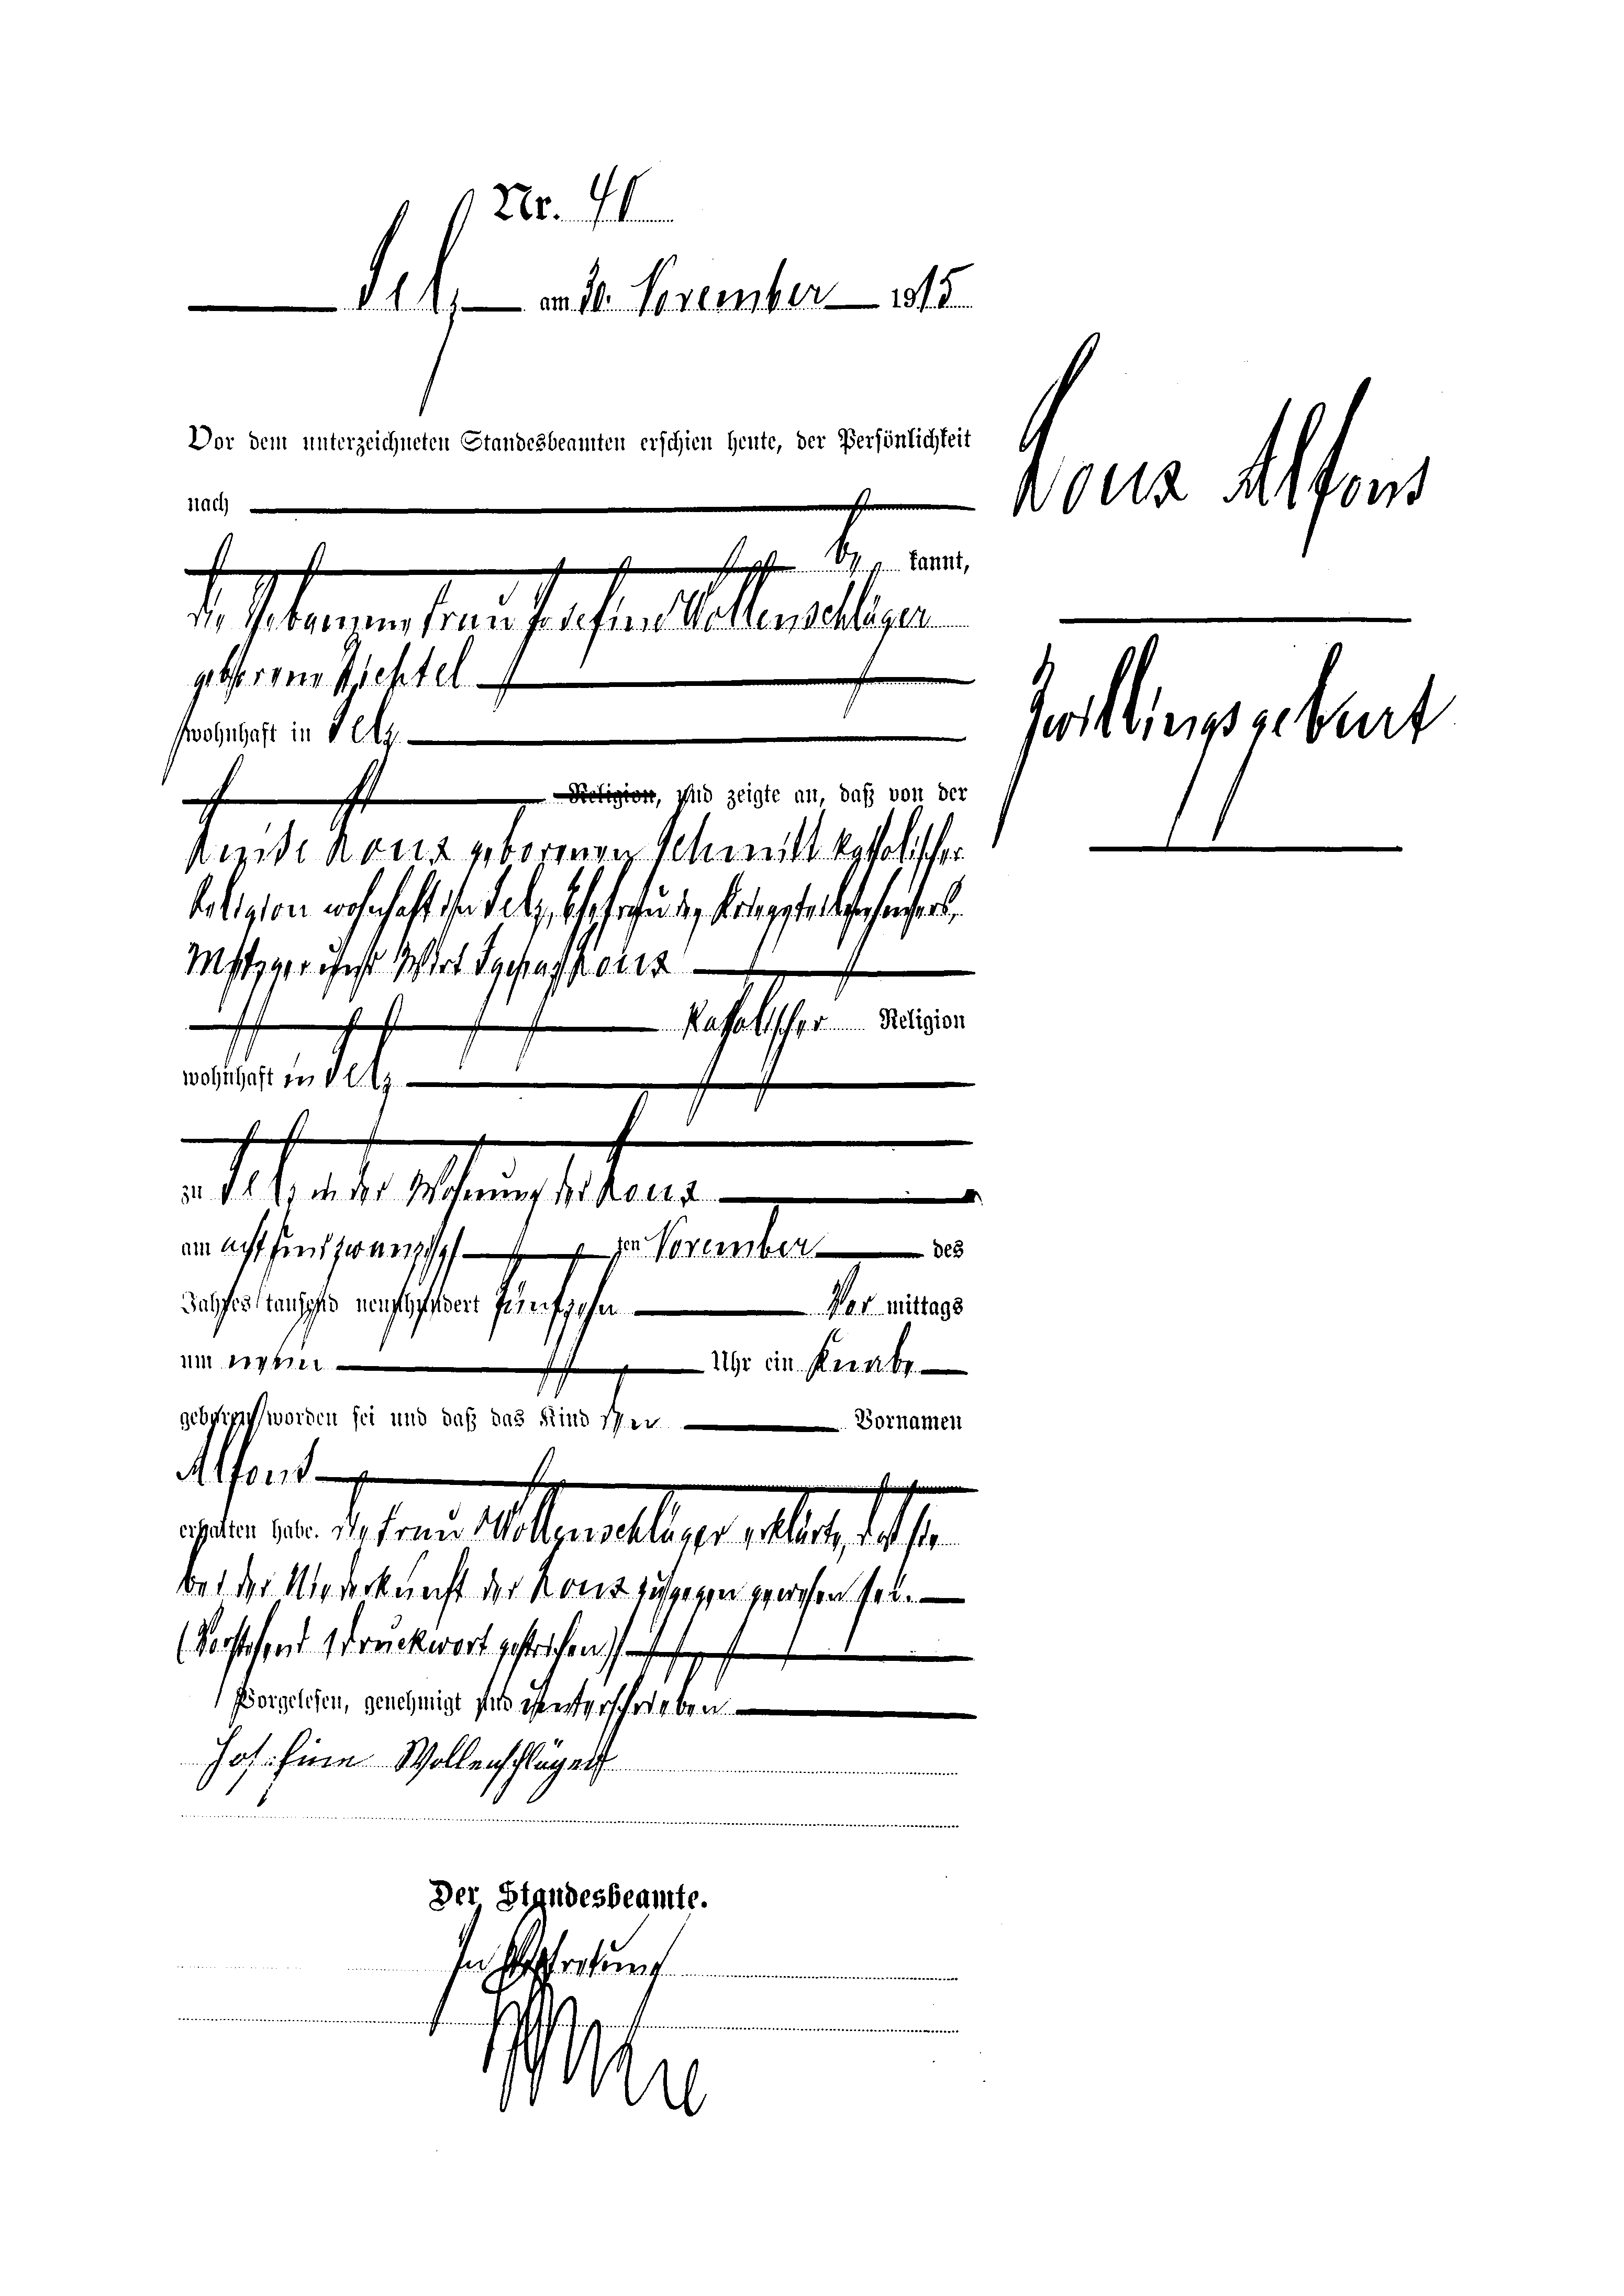 Nr. 41
Selz am 30. November 1915
Vor dem unterzeichneten Standesbeamten erschien heute, der Persönlichkeit
nach
be kannt,
die Hebamme Frau Josefine Wollenschläger
geborene Richtel
wohnhaft in Selz
Religion, und zeigte an, daß von der
geborenen Schmitt katholischer
Religion wohnhaft in Selz, Ehefrau des Kriegsteilnehmers,
Metzger und Wirt Ignaz
katholischer Religion
wohnhaft in Selz
zu Selz in der Wohnung der
am acht und zwanzigs ten November des
Jahres tausend neunhundert fünfzehn Vor mittags
um neun Uhr ein Knabe
geboren worden sei und daß das Kind den Vornamen
Alfons
erhalten habe. Die Frau Wollenschläger erklärte, daß sie
bei der Niederkunft der zugegen gewesen sei.
(Vorstehend 1 Druckwort gestrichen)
Vorgelesen, genehmigt und unterschrieben
Josefine Wollenschläger
Der Standesbeamte.
In Vertretung
Alfons
Zwillingsgeburt